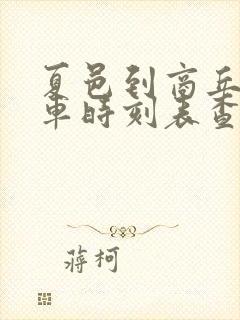 夏邑到商丘
車時刻表查
蔣柯